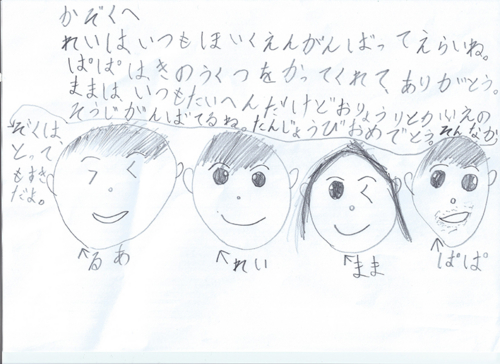 かぞくへ
れいは、いつもほいくえんがんばってえらいね。
ぱぱはきのうくつをかってくれて、ありがとう。
ままは、いつもたいへんだけどおりょうりとかいえの
そうじがんばてるね。たんじょうびおめでとう。そんなか
ぞくは、
とって
もすき
だよ。
るあ
れい
まま
ぱぱ